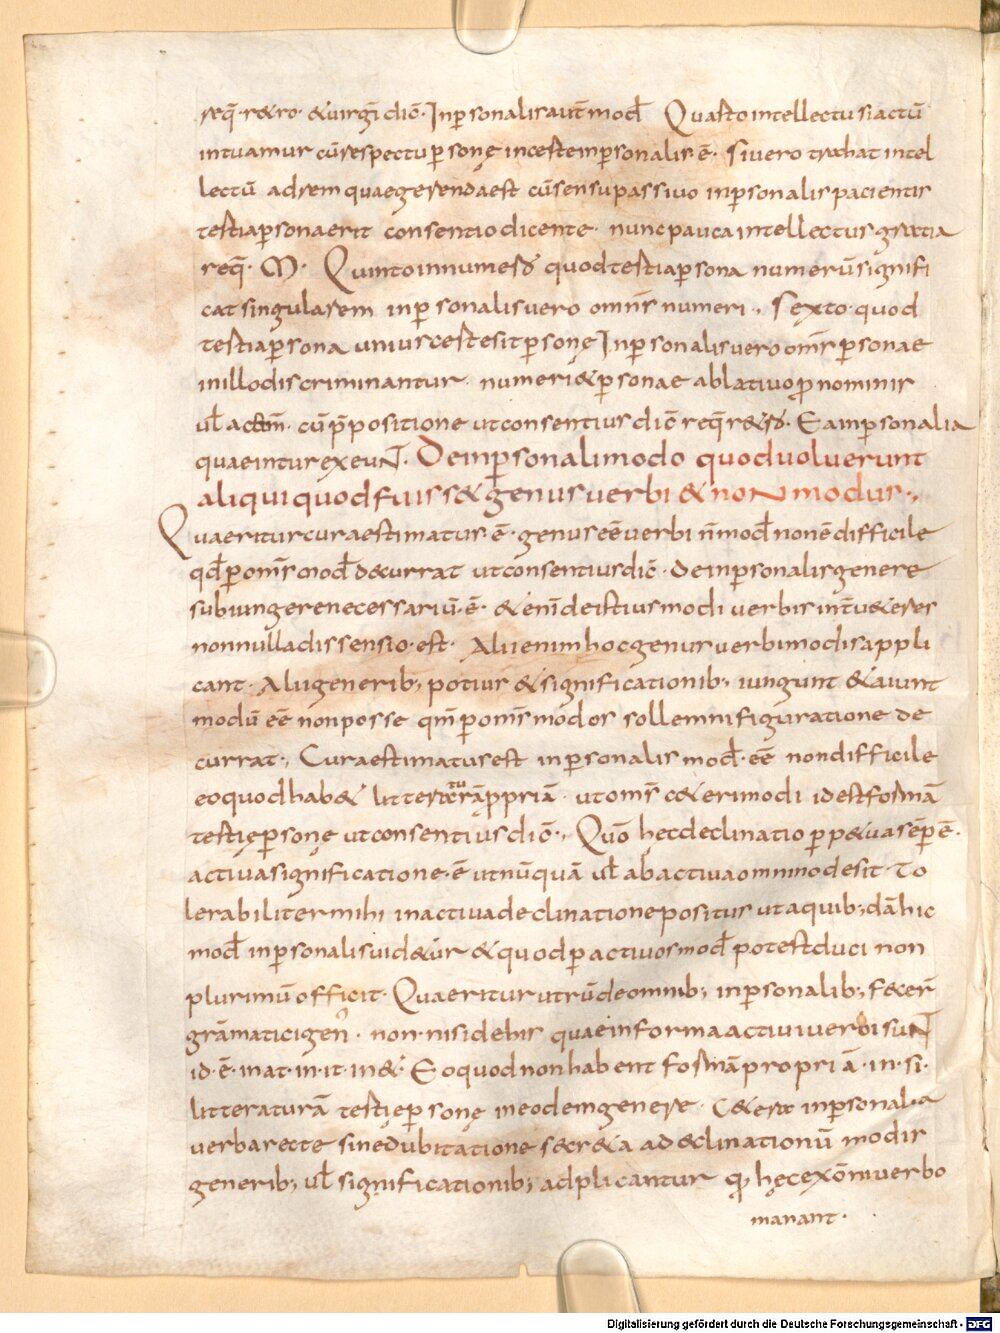 req̄· r&ro· &uirgī dic̄· Inꝑsonalis aut̄ mod̄ Quarto intellectu si actū
intuamur cū respectu ꝑsonę incerte inꝑsonalis ē· Si uero trahat intel
lectū ad rem quae gerenda est cū sensu passiuo inꝑsonalis pacientis
tertia ꝑsona erit consentio dicente· nunc pauca intellectus gratia
req̄· M· Quinto in numero quod tertia ꝑsona numerū signifi
cat singularem inꝑsonalis uero omnis numeri·, Sexto quod
tertia ꝑsona unius certe sit ꝑsonę Inꝑsonalis uero om̄s ꝑsonae
in illo discriminantur· numeri & ꝑsonae ablatiuo ꝓnominis
ul̄ cū p̄positione ut consentius dic̄ req̄ r&ro· Ea inꝑsonalia
quae in tur exeuNT· De inꝑsonali modo quod uoluerunt
aliqui quod fuiss& genus uerbi & noN modus·,
Quaeritur cur aestimatus ē· genus eē uerbi n̄ mod̄ non ē difficile
qd̄ ꝑ om̄s mod̄ decurrat ut consentius dic̄· de inꝑsonalis genere
subiungere necessariū· ē· & enī de istius modi uerbis int̄ u&eres
nonnulla dissensio· est· Alii enim hoc genus uerbi modis appli
cant· Alii generib; potius & significationib; iungunt & aiunt
modū eē non posse qm̄ ꝑ om̄s modos sollemni figuratione de
currat·, Cur aestimatus est inꝑsonalis mod̄· eē non difficile
eo quod hab& litteraturā ꝓpriā· ut om̄s c&eri modi id est formā
tertię ꝑsonę ut consentius dic̄·, Quō hęc declinatio ꝑp&ua sēꝑ ē·
actiua significatione· ē ut nūquā ul̄ ab actiua omnino desit· To
lerabiliter mihi in actiua declinatione positus ut a quib; dā hic
mod̄ inꝑsonalis uid&ur & quod ꝑ actiuos mod̄ potest duci non
plurimū officit· Quaeritur utrū de omnib; inꝑsonalib; fecer̄
grāmatici gen̄· non· nisi de his quae in forma actiui uerbi suNT
id· ē· in at· in· it· in &· Eo quod non habent formā propriā· in· si·
litteraturā tertię ꝑsonę in eodem genere· C&era inꝑsonalia
uerba recte sine dubitatione declinationū modis
generib; ul̄ significationib; adplicantur q; hęc ex ōni uerbo
manant·
Digitalisierung gefördert durch die Deutsche Forschungsgemeinschaft - DFG